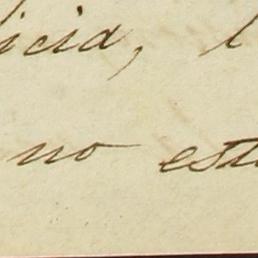 icia, l
no est